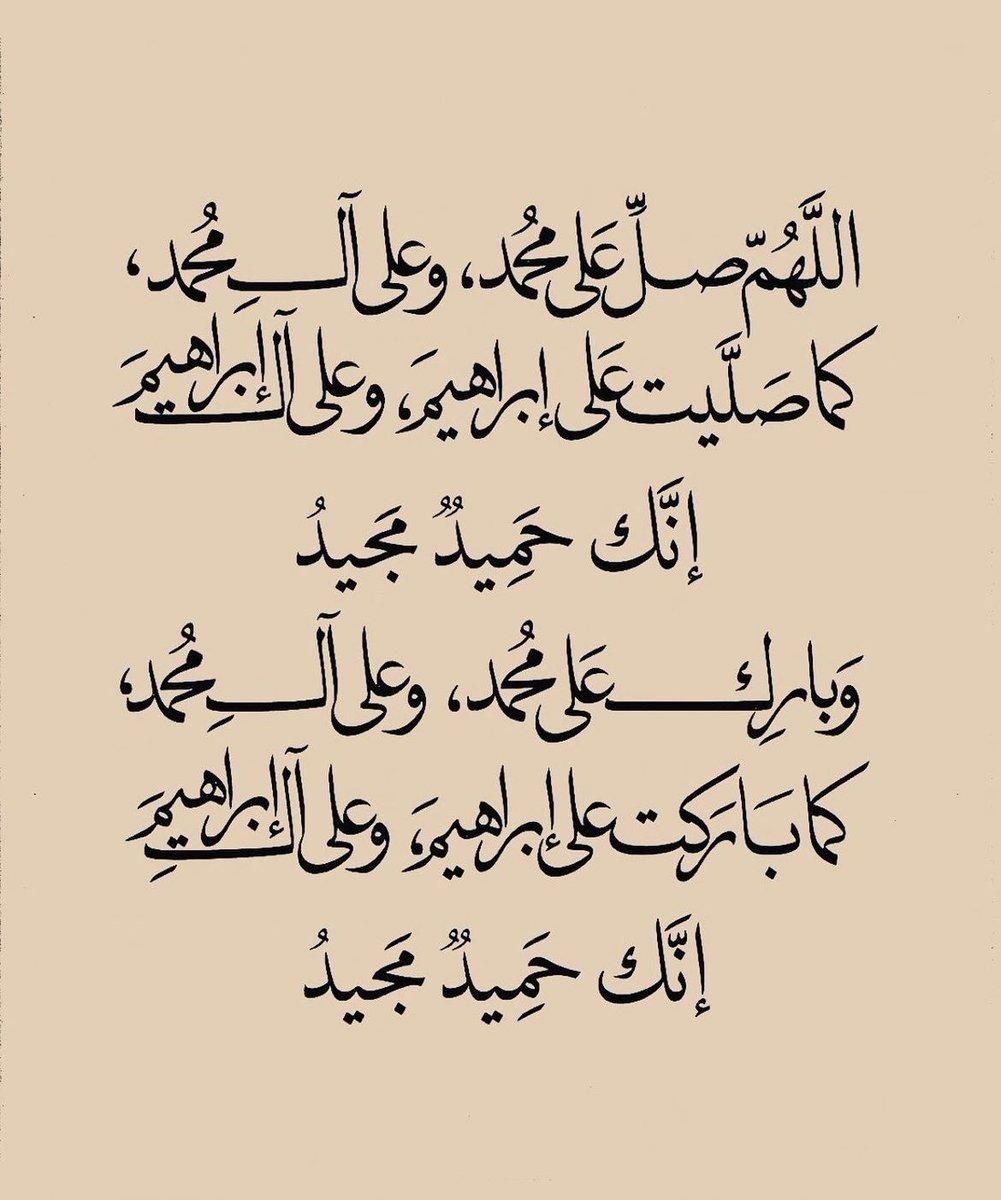 اللَّهُمّ صلِّ عَلى مُحمَد، وعلى آلِ مُحمَد،
كما صَلَّيت عَلى إبراهيمَ، وعلى آل إبراهيمَ
إنَّك حَمِيدٌ مَجيدُ
وَبارِك عَلى مُحمَد، وعلى آلِ مُحمَد،
كما بَارَكت على إبراهيمَ، وعلى آلِ إبراهيمَ
إنَّك حَمِيدٌ مَجيدُ